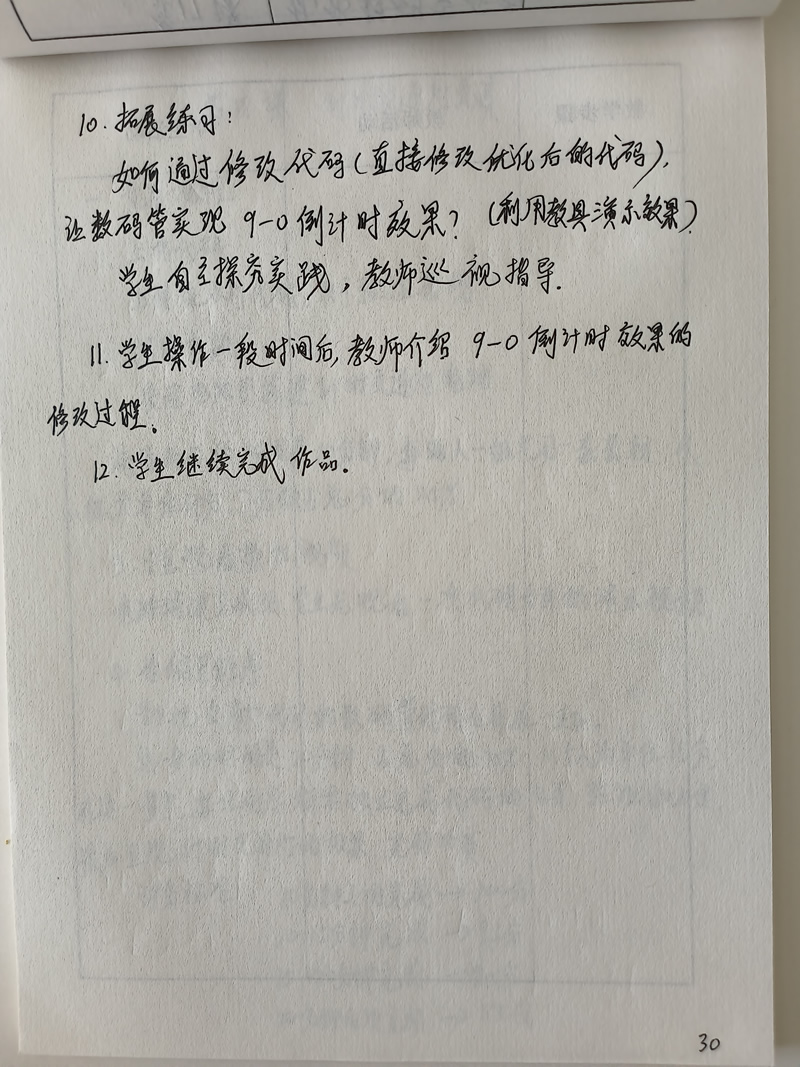 10. 拓展练习：
如何通过修改代码（直接修改优化后的代码），
让数码管实现 9-0 倒计时效果？（利用教具演示效果）
学生自主探究实践，教师巡视指导.
11. 学生操作一段时间后, 教师介绍 9-0 倒计时效果的
修改过程。
12. 学生继续完成作品。
30